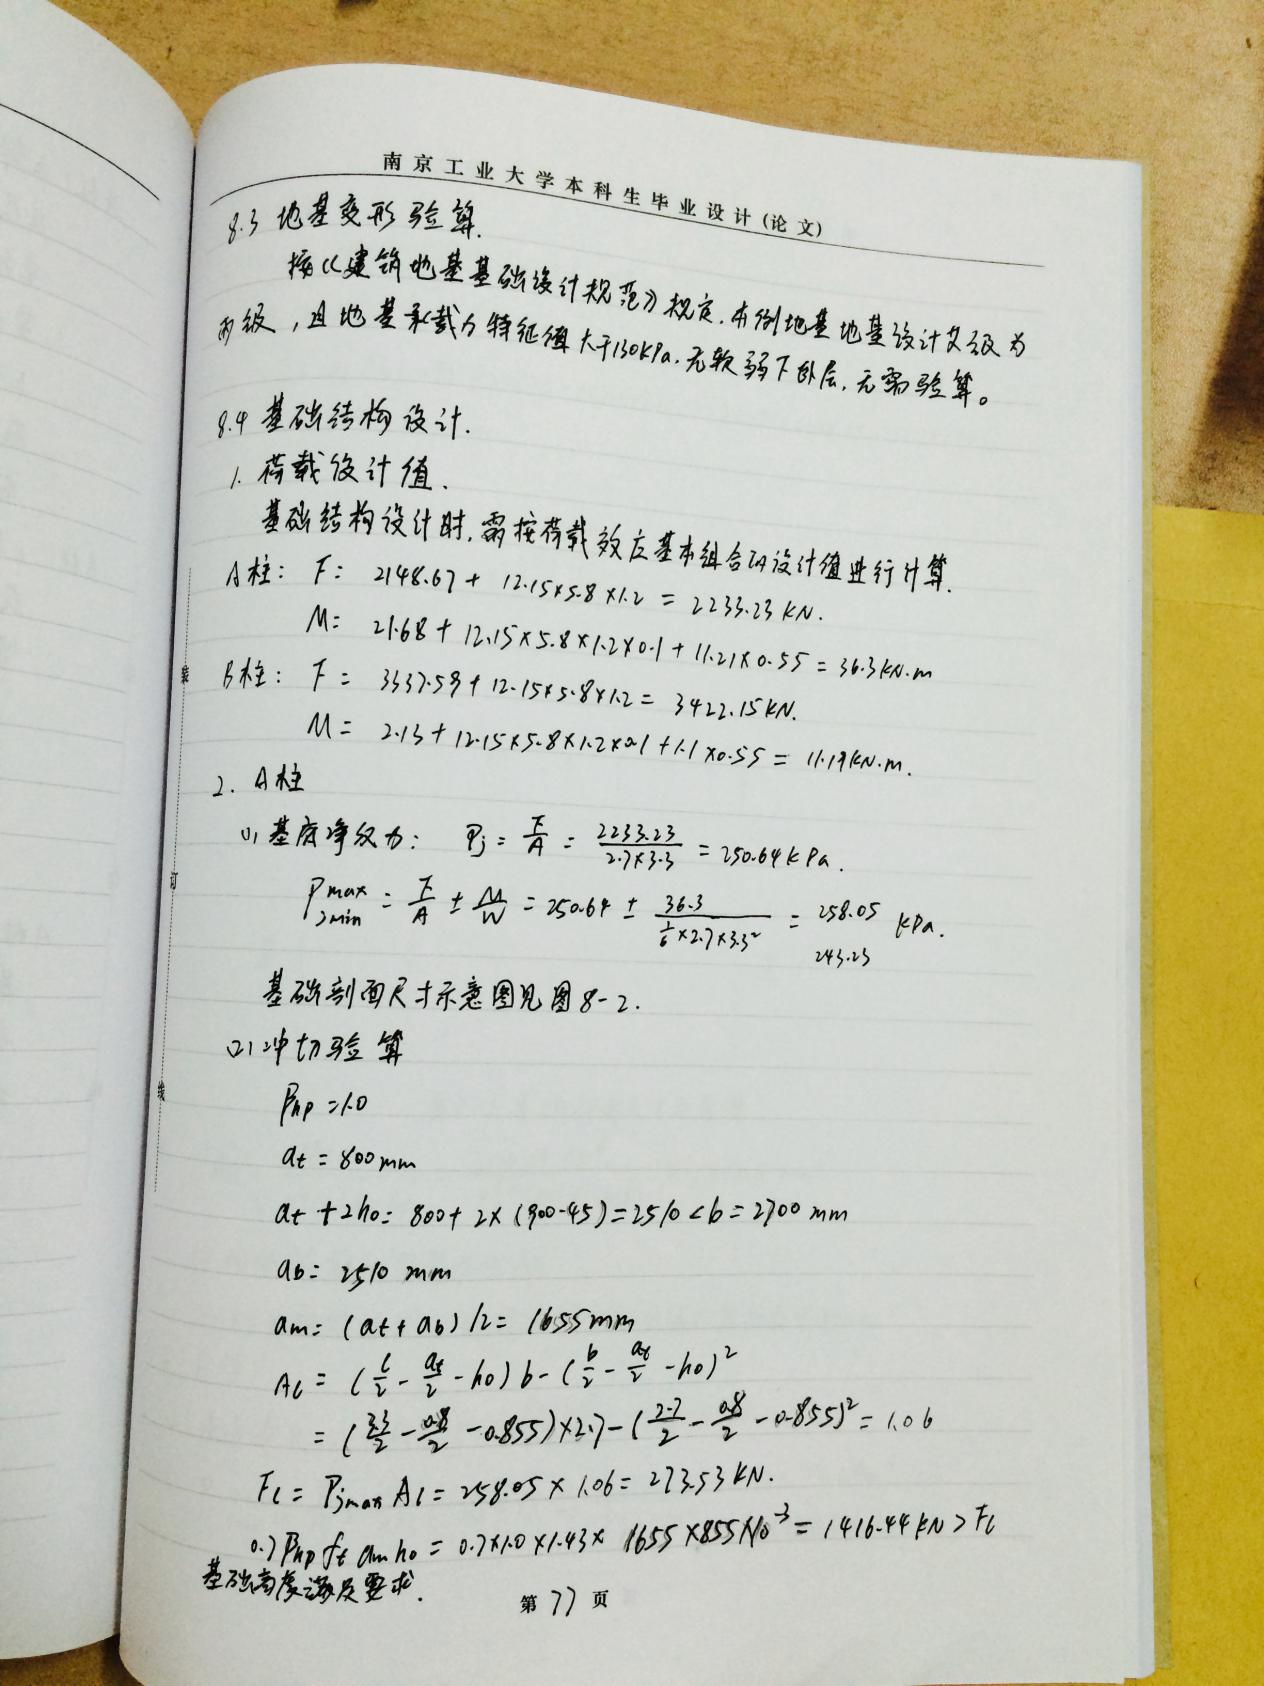 南京工业大学本科生毕业设计(论文)
8.3 地基变形验算.
按《建筑地基基础设计规范》规定.本例地基地基设计等级为
丙级,且地基承载力特征值大于130kPa.无软弱下卧层,无需验算。
8.4 基础结构设计.
1. 荷载设计值.
基础结构设计时,需按荷载效应基本组合的设计值进行计算.
A柱: F= 2148.67+ 12.15×5.8×1.2 = 2233.23 KN.
M= 21.68+ 12.15×5.8×1.2×0.1+11.21×0.55=36.3KN.m
B柱: F= 3337.59+12.15×5.8×1.2= 3422.15KN.
M= 2.13+12.15×5.8×1.2×0.1+1.1×0.55= 11.19KN.m.
2. A柱
(1)基底净反力: Pj = F/A = 2233.23/2.7×3.3 = 250.64KPa.
P max jmin = F/A ± M/W = 250.64 ± 36.3/(1/6×2.7×3.3²) = 258.05 243.23 KPa.
基础剖面尺寸示意图见图8-2.
(2)冲切验算
βhp=1.0
at=800mm
at+2ho=800+2×(900-45)=2510<b=2700mm
ab=2510 mm
am=(at+ab)/2=1655mm
Al = (l/2 - at/2 - ho)b-(b/2 - at/2 - ho)²
= (3.3/2 - 0.8/2 - 0.855)×2.7-(2.7/2 - 0.8/2 - 0.855)²=1.06
Fl= Pjmax Al=258.05×1.06=273.53KN.
0.7βhp ft am ho = 0.7×1.0×1.43×1655×855×10⁻³=1416.44KN>Fl
基础高度满足要求.
第77页
装
订
线